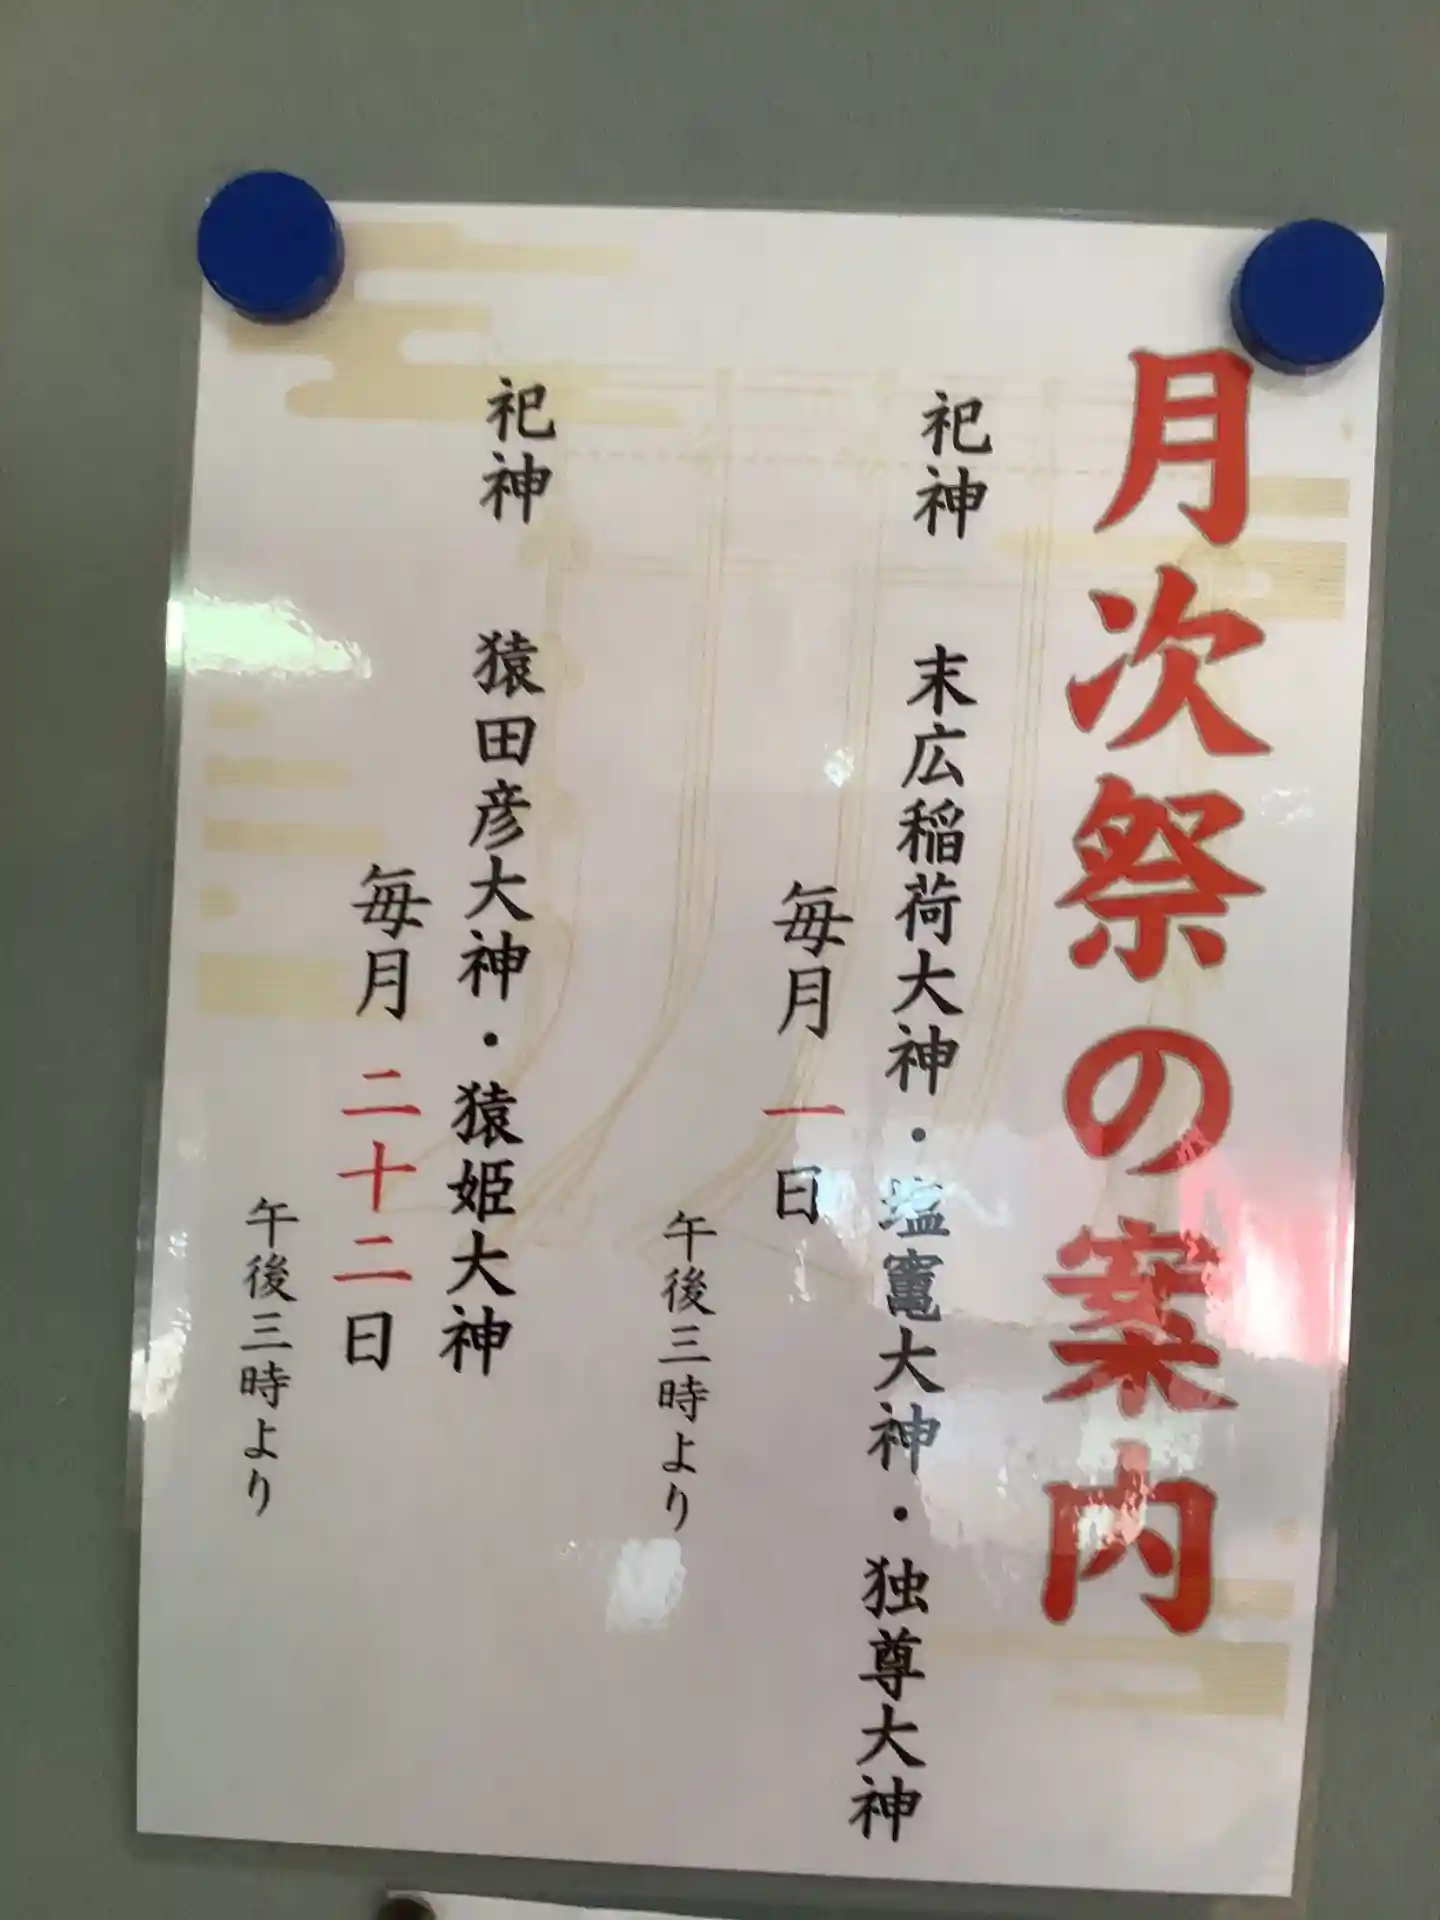 月次祭の案内
祀神　末広稲荷大神・塩竈大神・独尊大神
毎月一日
午後三時より
祀神　猿田彦大神・猿姫大神
毎月二十二日
午後三時より